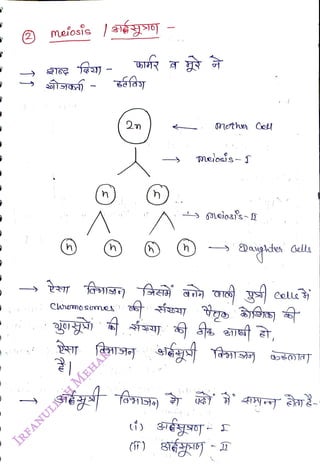 ② meiosis / अर्द्धसूत्रण -
→ शब्द दिया - फार्मर व मूरे ने
→ खोजकर्ता - हर्टविग
2n ← Mother Cell
→ meiosis - I
n n
→ meiosis - II
n n n n → Daughter Cells
→ ऐसा विभाजन जिसमें बनने वाली पुत्री Cells में
Chromosomes की संख्या पैतृक कोशिका की
गुणसूत्रो की संख्या की ठीक आधी हो,
ऐसा विभाजन अर्द्धसूत्री विभाजन कहलाता
है।
→ अर्द्धसूत्री विभाजन दो पदों में सम्पन्न होता है-
(i) अर्द्धसूत्रण - I
(ii) अर्द्धसूत्रण - II